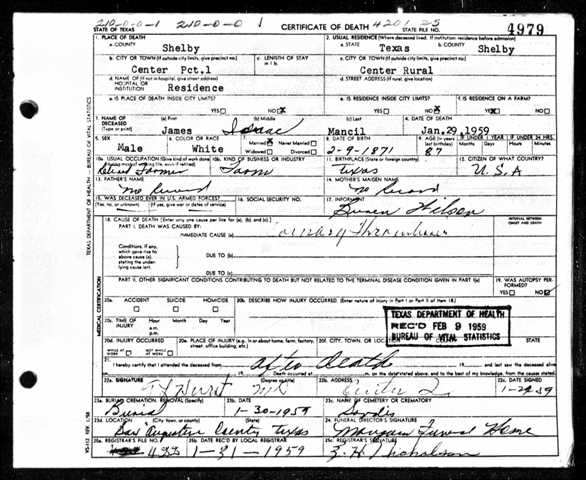 210-0-0-1 210-0-0 1
STATE OF TEXAS CERTIFICATE OF DEATH 4201 25 STATE FILE NO. 4979
1. PLACE OF DEATH 2. USUAL RESIDENCE (Where deceased lived. If institution: residence before admission)
a. COUNTY Shelby a. STATE Texas b. COUNTY Shelby
b. CITY OR TOWN (If outside city limits, give precinct no.) c. LENGTH OF STAY in 1 b. c. CITY OR TOWN (If outside city limits, give precinct no.)
Center Pct.1 Center Rural
d. NAME OF (If not in hospital, give street address) HOSPITAL OR INSTITUTION Residence d. STREET ADDRESS (If rural, give location)
e. IS PLACE OF DEATH INSIDE CITY LIMITS? YES NO e. IS RESIDENCE INSIDE CITY LIMITS? YES NO f. IS RESIDENCE ON A FARM? YES NO
3. NAME OF DECEASED (Type or print) (a) First (b) Middle (c) Last 4. DATE OF DEATH
James Isaac Mancil Jan.29,1959
5. SEX 6. COLOR OR RACE 7. Married Never Married Widowed Divorced 8. DATE OF BIRTH 9. AGE (In years last birthday) IF UNDER 1 YEAR Months Days IF UNDER 24 HRS. Hours Min.
Male White 2-9-1871 87
10a. USUAL OCCUPATION (Give kind of work done during most of working life, even if retired) 10b. KIND OF BUSINESS OR INDUSTRY 11. BIRTHPLACE (State or foreign country) 12. CITIZEN OF WHAT COUNTRY?
Retired Farmer Farm Texas U.S.A
13. FATHER'S NAME 14. MOTHER'S MAIDEN NAME
No Record No Record
15. WAS DECEASED EVER IN U.S. ARMED FORCES? (Yes, no, or unknown) (If yes, give war or dates of service) 16. SOCIAL SECURITY NO. 17. INFORMANT
Wilson
18. CAUSE OF DEATH (Enter only one cause per line for (a), (b) and (c).) INTERVAL BETWEEN ONSET AND DEATH
PART I. DEATH WAS CAUSED BY:
IMMEDIATE CAUSE (a)
Conditions, if any, which gave rise to above cause (a), stating the underlying cause last. DUE TO (b)
DUE TO (c)
PART II. OTHER SIGNIFICANT CONDITIONS CONTRIBUTING TO DEATH BUT NOT RELATED TO THE TERMINAL DISEASE CONDITION GIVEN IN PART I(a) 19. WAS AUTOPSY PERFORMED? YES NO
20a. ACCIDENT SUICIDE HOMICIDE 20b. DESCRIBE HOW INJURY OCCURRED. (Enter nature of injury in Part I or Part II of item 18.)
20c. TIME OF INJURY Hour Month Day Year a.m. p.m.
TEXAS DEPARTMENT OF HEALTH
REC'D FEB 9 1959
BUREAU OF VITAL STATISTICS
20d. INJURY OCCURRED WHILE AT WORK NOT WHILE AT WORK 20e. PLACE OF INJURY (e.g., in or about home, farm, factory, street, office building, etc.) 20f. CITY, TOWN, OR LOCATION COUNTY STATE
21. I hereby certify that I attended the deceased from after Death, 19 and last saw the deceased alive
on 19 Death occurred at m. on the date stated above, and to the best of my knowledge, from the causes stated.
22a. SIGNATURE (Degree or title) 22b. ADDRESS 22c. DATE SIGNED
Hurst MD Center
23a. BURIAL, CREMATION, REMOVAL (Specify) 23b. DATE 23c. NAME OF CEMETERY OR CREMATORY
Burial 1-30-1959 Sardis
23d. LOCATION (City, town, or county) (State) 24. FUNERAL DIRECTOR'S SIGNATURE
San Augustine County Texas Mangum Funeral Home
25a. REGISTRAR'S FILE NO. 25b. DATE REC'D BY LOCAL REGISTRAR 25c. REGISTRAR'S SIGNATURE
433 1-31-1959 Z. H. Nicholson
TEXAS DEPARTMENT OF HEALTH — BUREAU OF VITAL STATISTICS
MEDICAL CERTIFICATION
VS-112 REV. 1/58